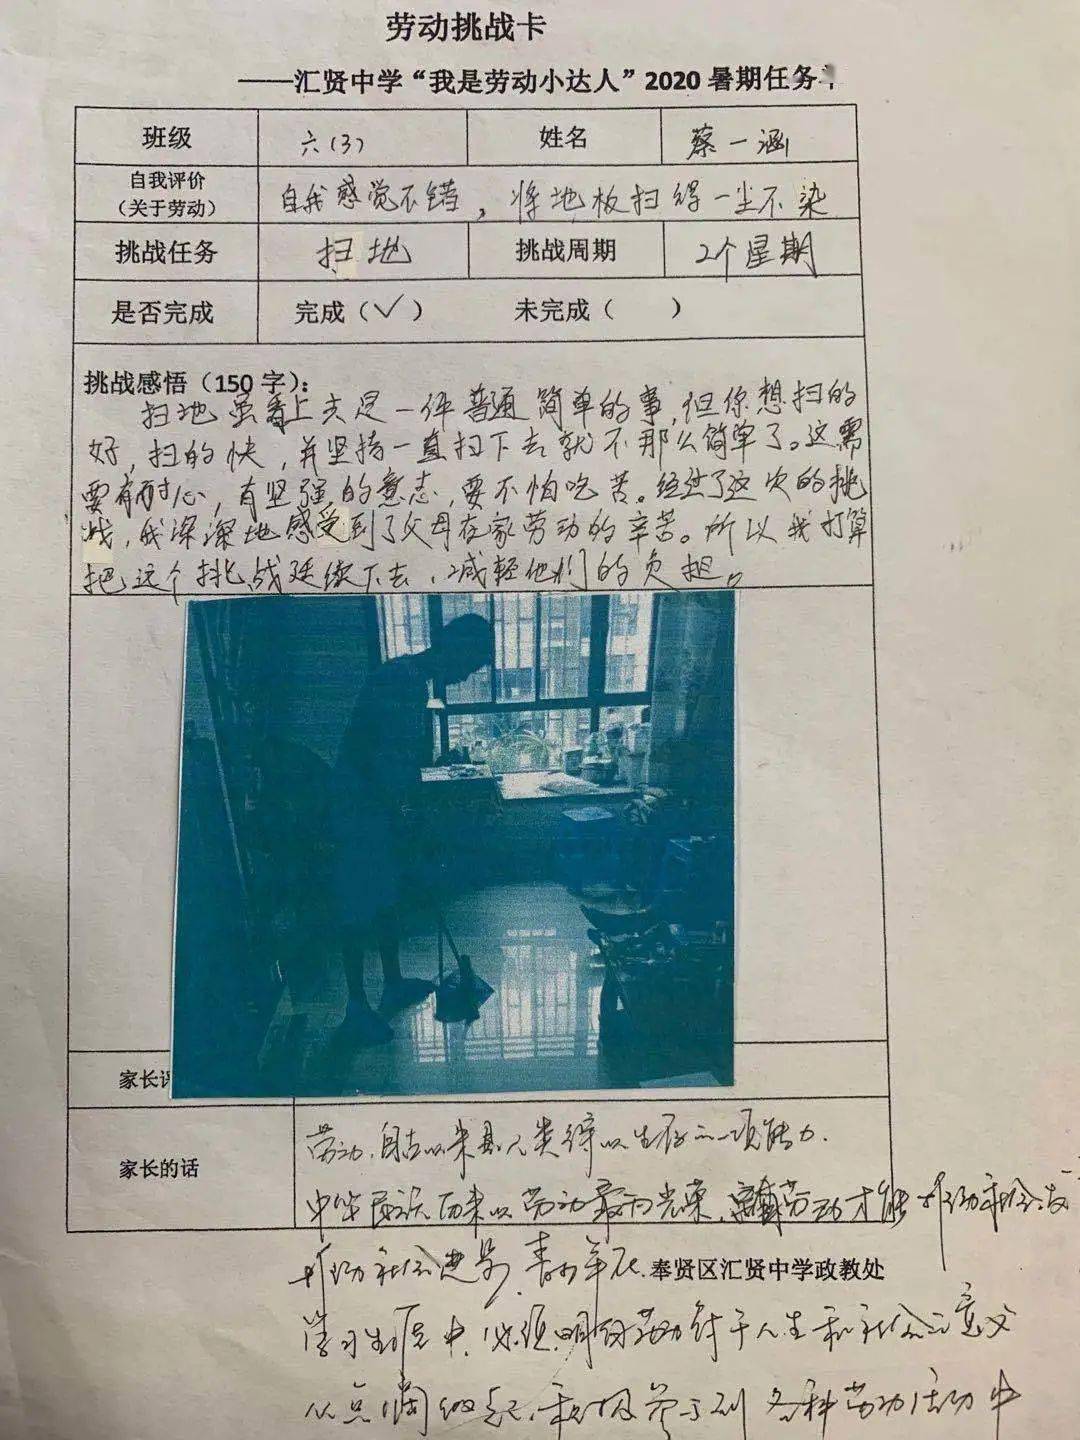 劳动挑战卡
——汇贤中学“我是劳动小达人”2020暑期任务
班级 六(3) 姓名 蔡一涵
自我评价
(关于劳动) 自我感觉不错，将地板扫得一尘不染
挑战任务 扫地 挑战周期 2个星期
是否完成 完成(√) 未完成( )
挑战感悟(150字):
扫地虽看上去是一件普通简单的事,但你想扫的
好,扫的快,并坚持一直扫下去就不那么简单了。这需
要有耐心,有坚强的意志,要不怕吃苦。经过了这次的挑
战,我深深地感受到了父母在家劳动的辛苦。所以我打算
把这个挑战延续下去,减轻他们的负担。
家长评
家长的话
劳动,自古以来是人类得以生存的一项能力.
中华民族历来以劳动最为光荣,劳动才能推动社会发
推动社会进步,青少年在
奉贤区汇贤中学政教处
学习生涯中,必须明白劳动对于人生和社会的意义
从点滴做起,积极参与到各种劳动活动中